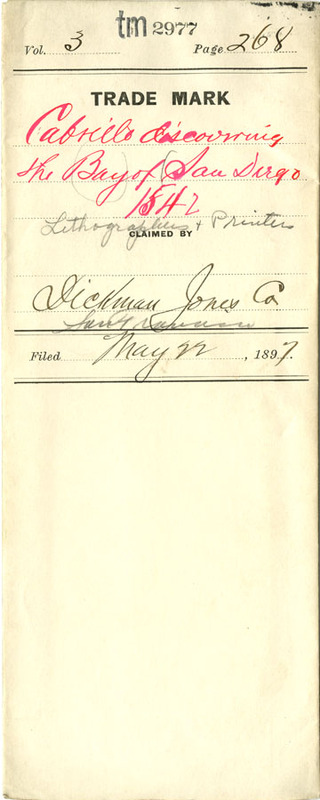 tm 2977
Vol. 3 Page 268
TRADE MARK
Cabrillo discovering
the Bay of San Diego
1542
Lithographers + Printers
CLAIMED BY
Dickman Jones Co.
San Francisco
Filed May 22, 1897.